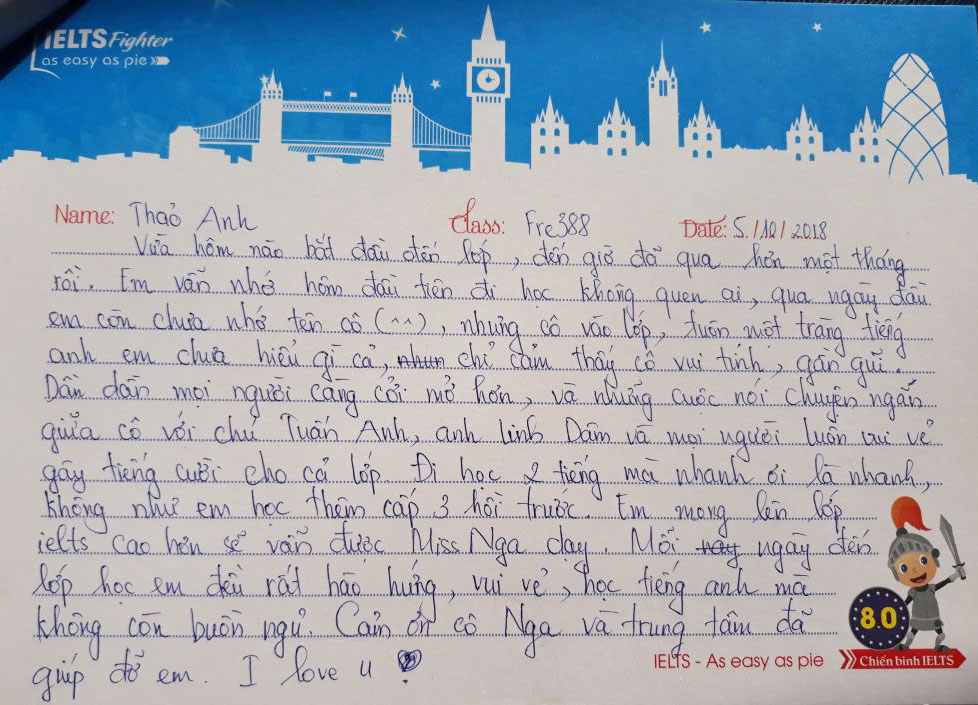 IELTS Fighter
as easy as pie
Name: Thảo Anh Class: Fre388 Date: 5/10/2018
Vừa hôm nào bắt đầu đến lớp, đến giờ đã qua hơn một tháng
rồi. Em vẫn nhớ hôm đầu tiên đi học không quen ai, qua ngày đầu
em còn chưa nhớ tên cô (^^), nhưng cô vào lớp, luôn một tràng tiếng
anh em chưa hiểu gì cả, nhưn chỉ cảm thấy cô vui tính, gần gũi.
Dần dần mọi người càng cởi mở hơn, và những cuộc nói chuyện ngắn
giữa cô với chú Tuấn Anh, anh Linh Dâm và mọi người luôn vui vẻ
gây tiếng cười cho cả lớp. Đi học 2 tiếng mà nhanh ơi là nhanh,
không như em học thêm cấp 3 hồi trước. Em mong lên lớp
ielts cao hơn sẽ vẫn được Miss Nga dạy. Mỗi ngày đến
lớp học em đều rất hào hứng, vui vẻ, học tiếng anh mà
không còn buồn ngủ. Cảm ơn cô Nga và trung tâm đã
giúp đỡ em. I love u
8.0
IELTS - As easy as pie Chiến binh IELTS